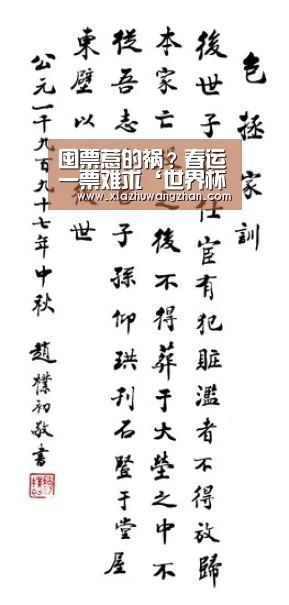 包拯家訓
後世子仕宦有犯贓濫者不得放歸
本家亡之後不得葬于大塋之中不
從吾志子孫仰珙刊石豎于堂屋
東壁以後世
公元一千九百九十七年中秋 趙樸初敬書
囤票惹的祸？春运
一票难求‘世界杯
www.xiazhuwangzhan.com